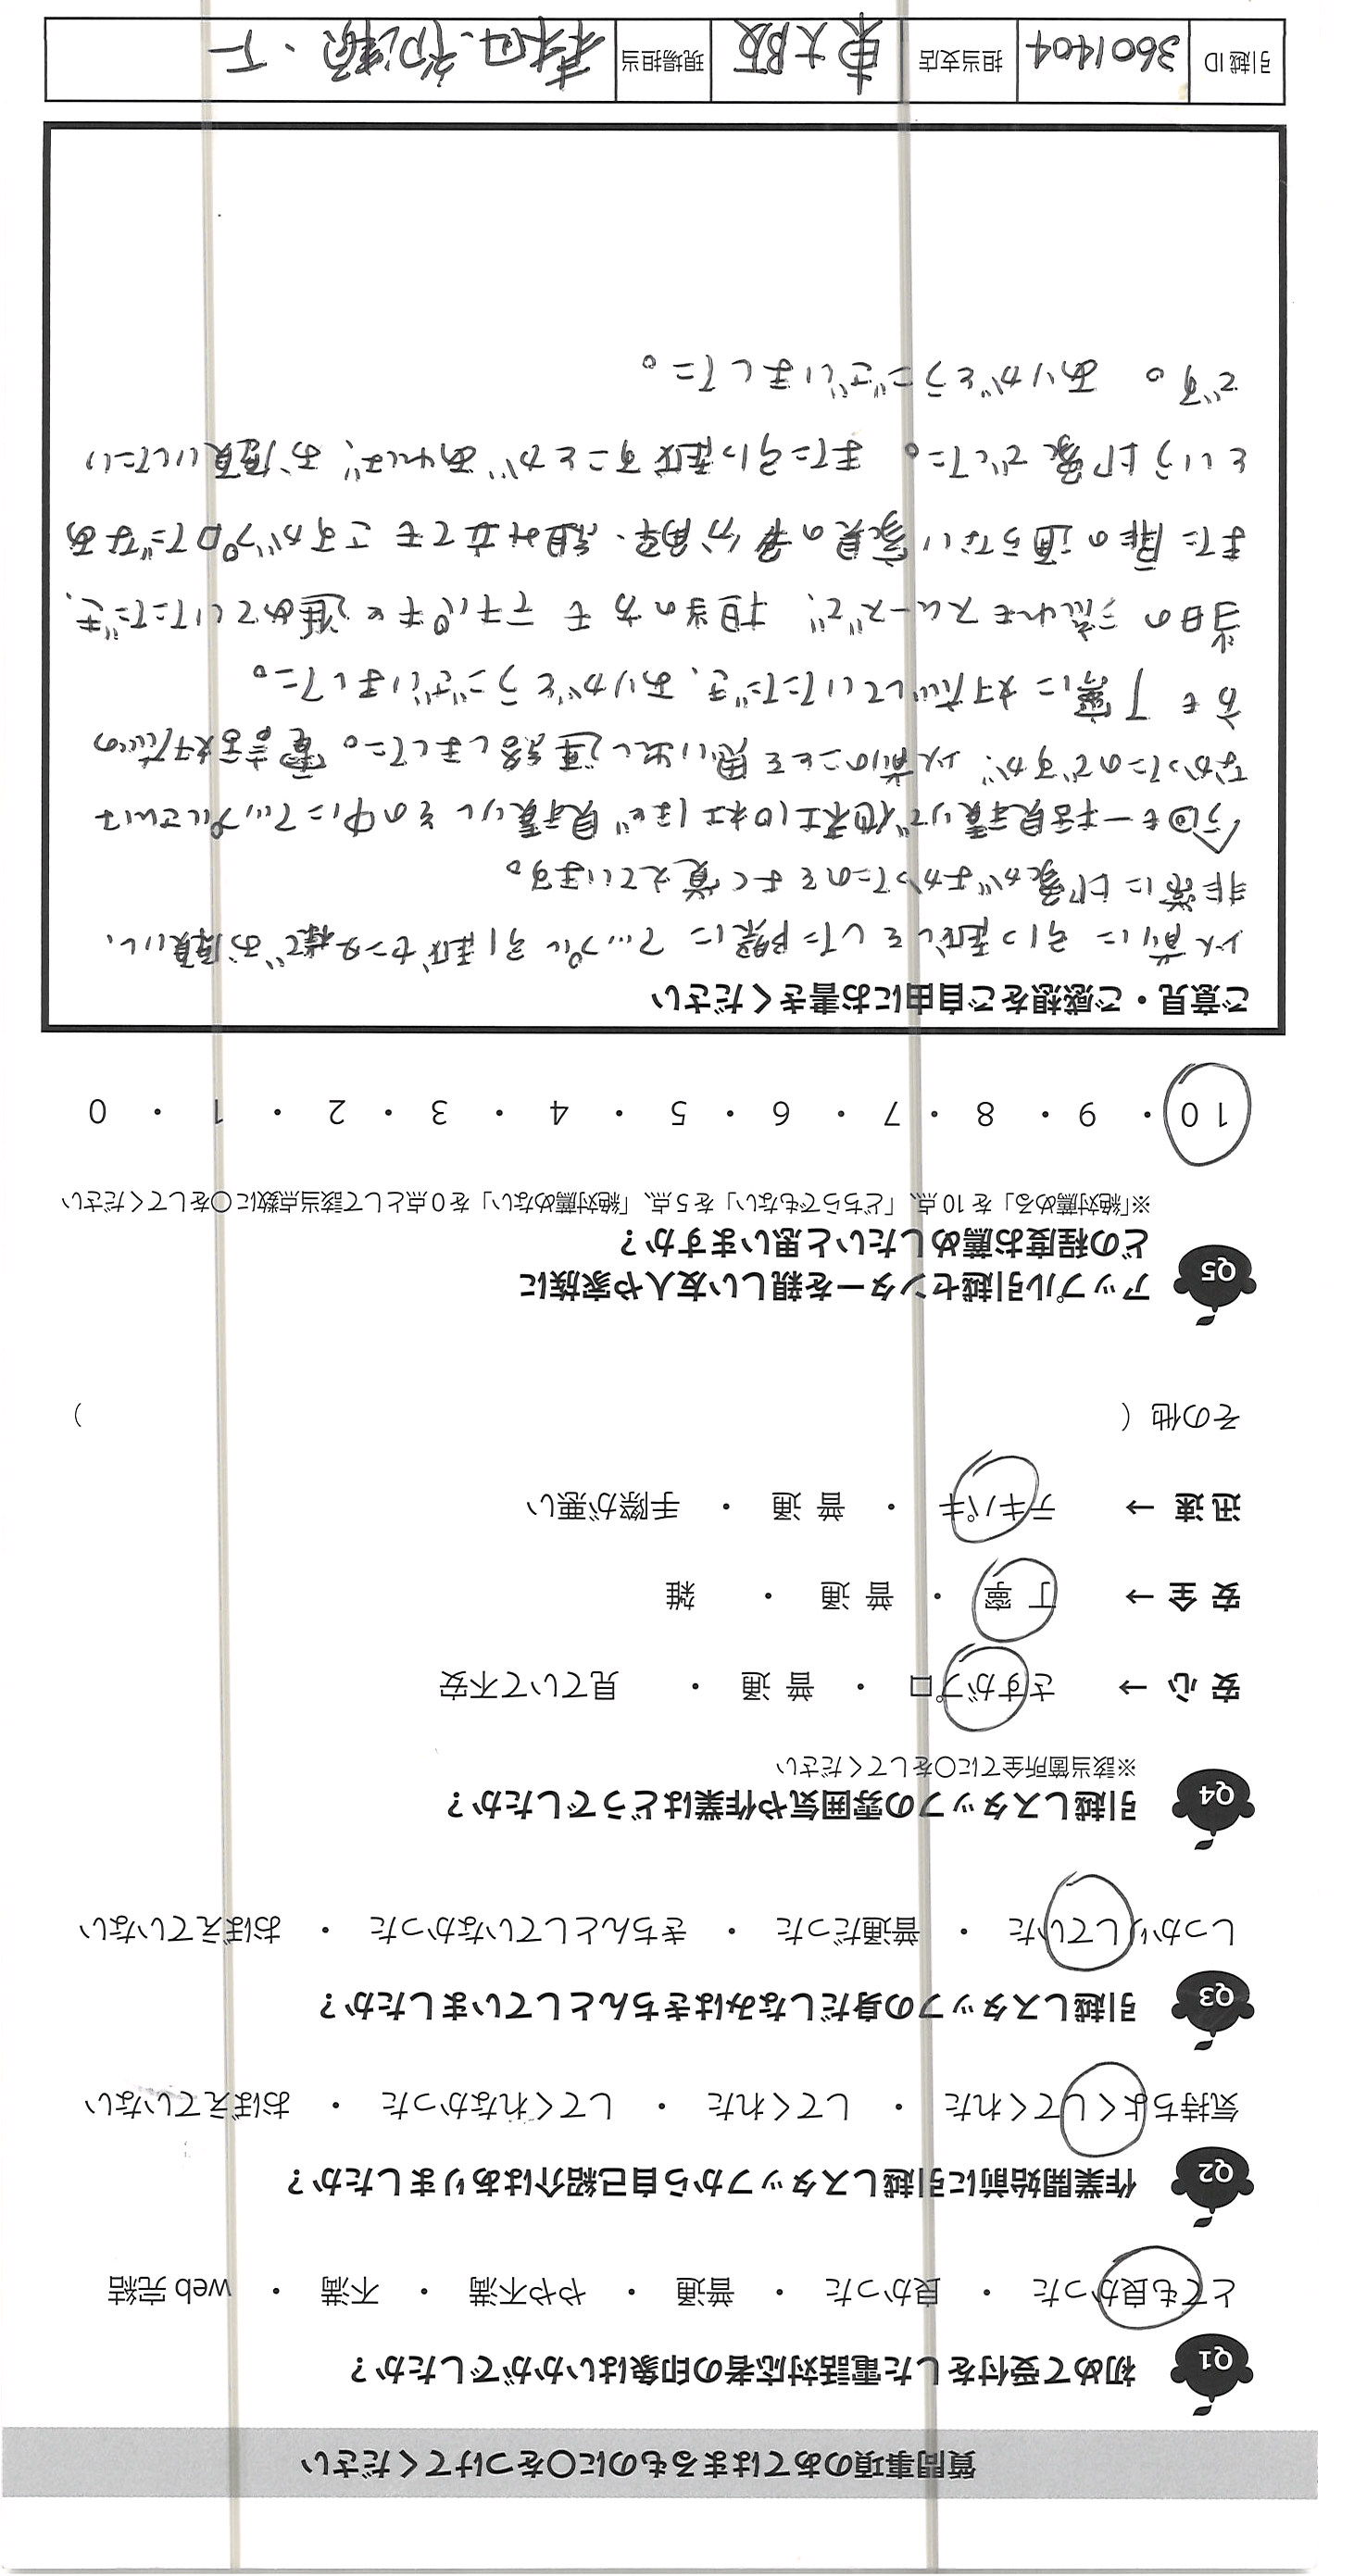 質問事項のあてはまるものに〇をつけてください
Q1 初めて受付をした電話対応者の印象はいかがでしたか？
とても良かった ・ 良かった ・ 普通 ・ やや不満 ・ 不満 ・ web 完結
Q2 作業開始前に引越しスタッフから自己紹介はありましたか？
気持ちよくしてくれた ・ してくれた ・ してくれなかった ・ おぼえていない
Q3 引越しスタッフの身だしなみはきちんとしていましたか？
しっかりしていた ・ 普通だった ・ きちんとしていなかった ・ おぼえていない
Q4 引越しスタッフの雰囲気や作業はどうでしたか？
※該当箇所全てに〇をしてください
安心 → さすがプロ ・ 普通 ・ 見ていて不安
安全 → 丁寧 ・ 普通 ・ 雑
迅速 → テキパキ ・ 普通 ・ 手際が悪い
その他（ ）
Q5 アップル引越センターを親しい友人や家族に
どの程度お薦めしたいと思いますか？
※「絶対薦める」を 10 点、「どちらでもない」を 5 点、「絶対薦めない」を 0 点として該当点数に〇をしてください
10 ・ 9 ・ 8 ・ 7 ・ 6 ・ 5 ・ 4 ・ 3 ・ 2 ・ 1 ・ 0
ご意見・ご感想をご自由にお書きください
以前に引っ越しをした際にアップル引越センター様でお願いし、
非常に印象がよかったのをよく覚えています。
今回も一括見積りで他社10社ほど見積りしその中にアップルさんは
なかったのですが、以前のことを思い出し連絡しました。電話対応の
方も丁寧に対応していただき、ありがとうございました。
当日の流れもスムーズで、担当の方もテキパキと進めていただき、
また扉の通らない家具の分解、組み立てもさすがプロだなあ
という印象でした。また引っ越すことがあれば、お願いしたい
です。 ありがとうございました。
引越 ID 3601404 担当支店 東大阪 現場担当